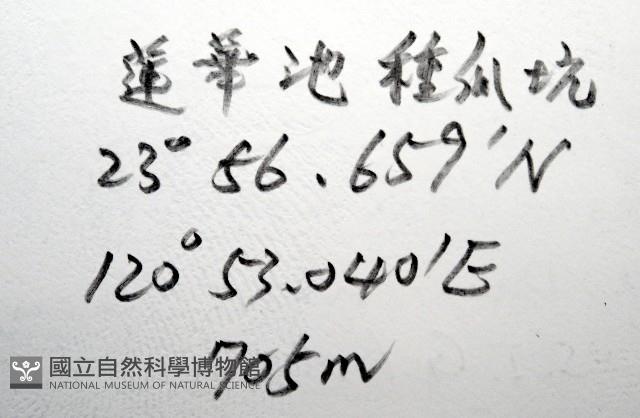 蓮華池 種瓜坑
23° 56.659'N
120° 53.040'E
705m
國立自然科學博物館
NATIONAL MUSEUM OF NATURAL SCIENCE